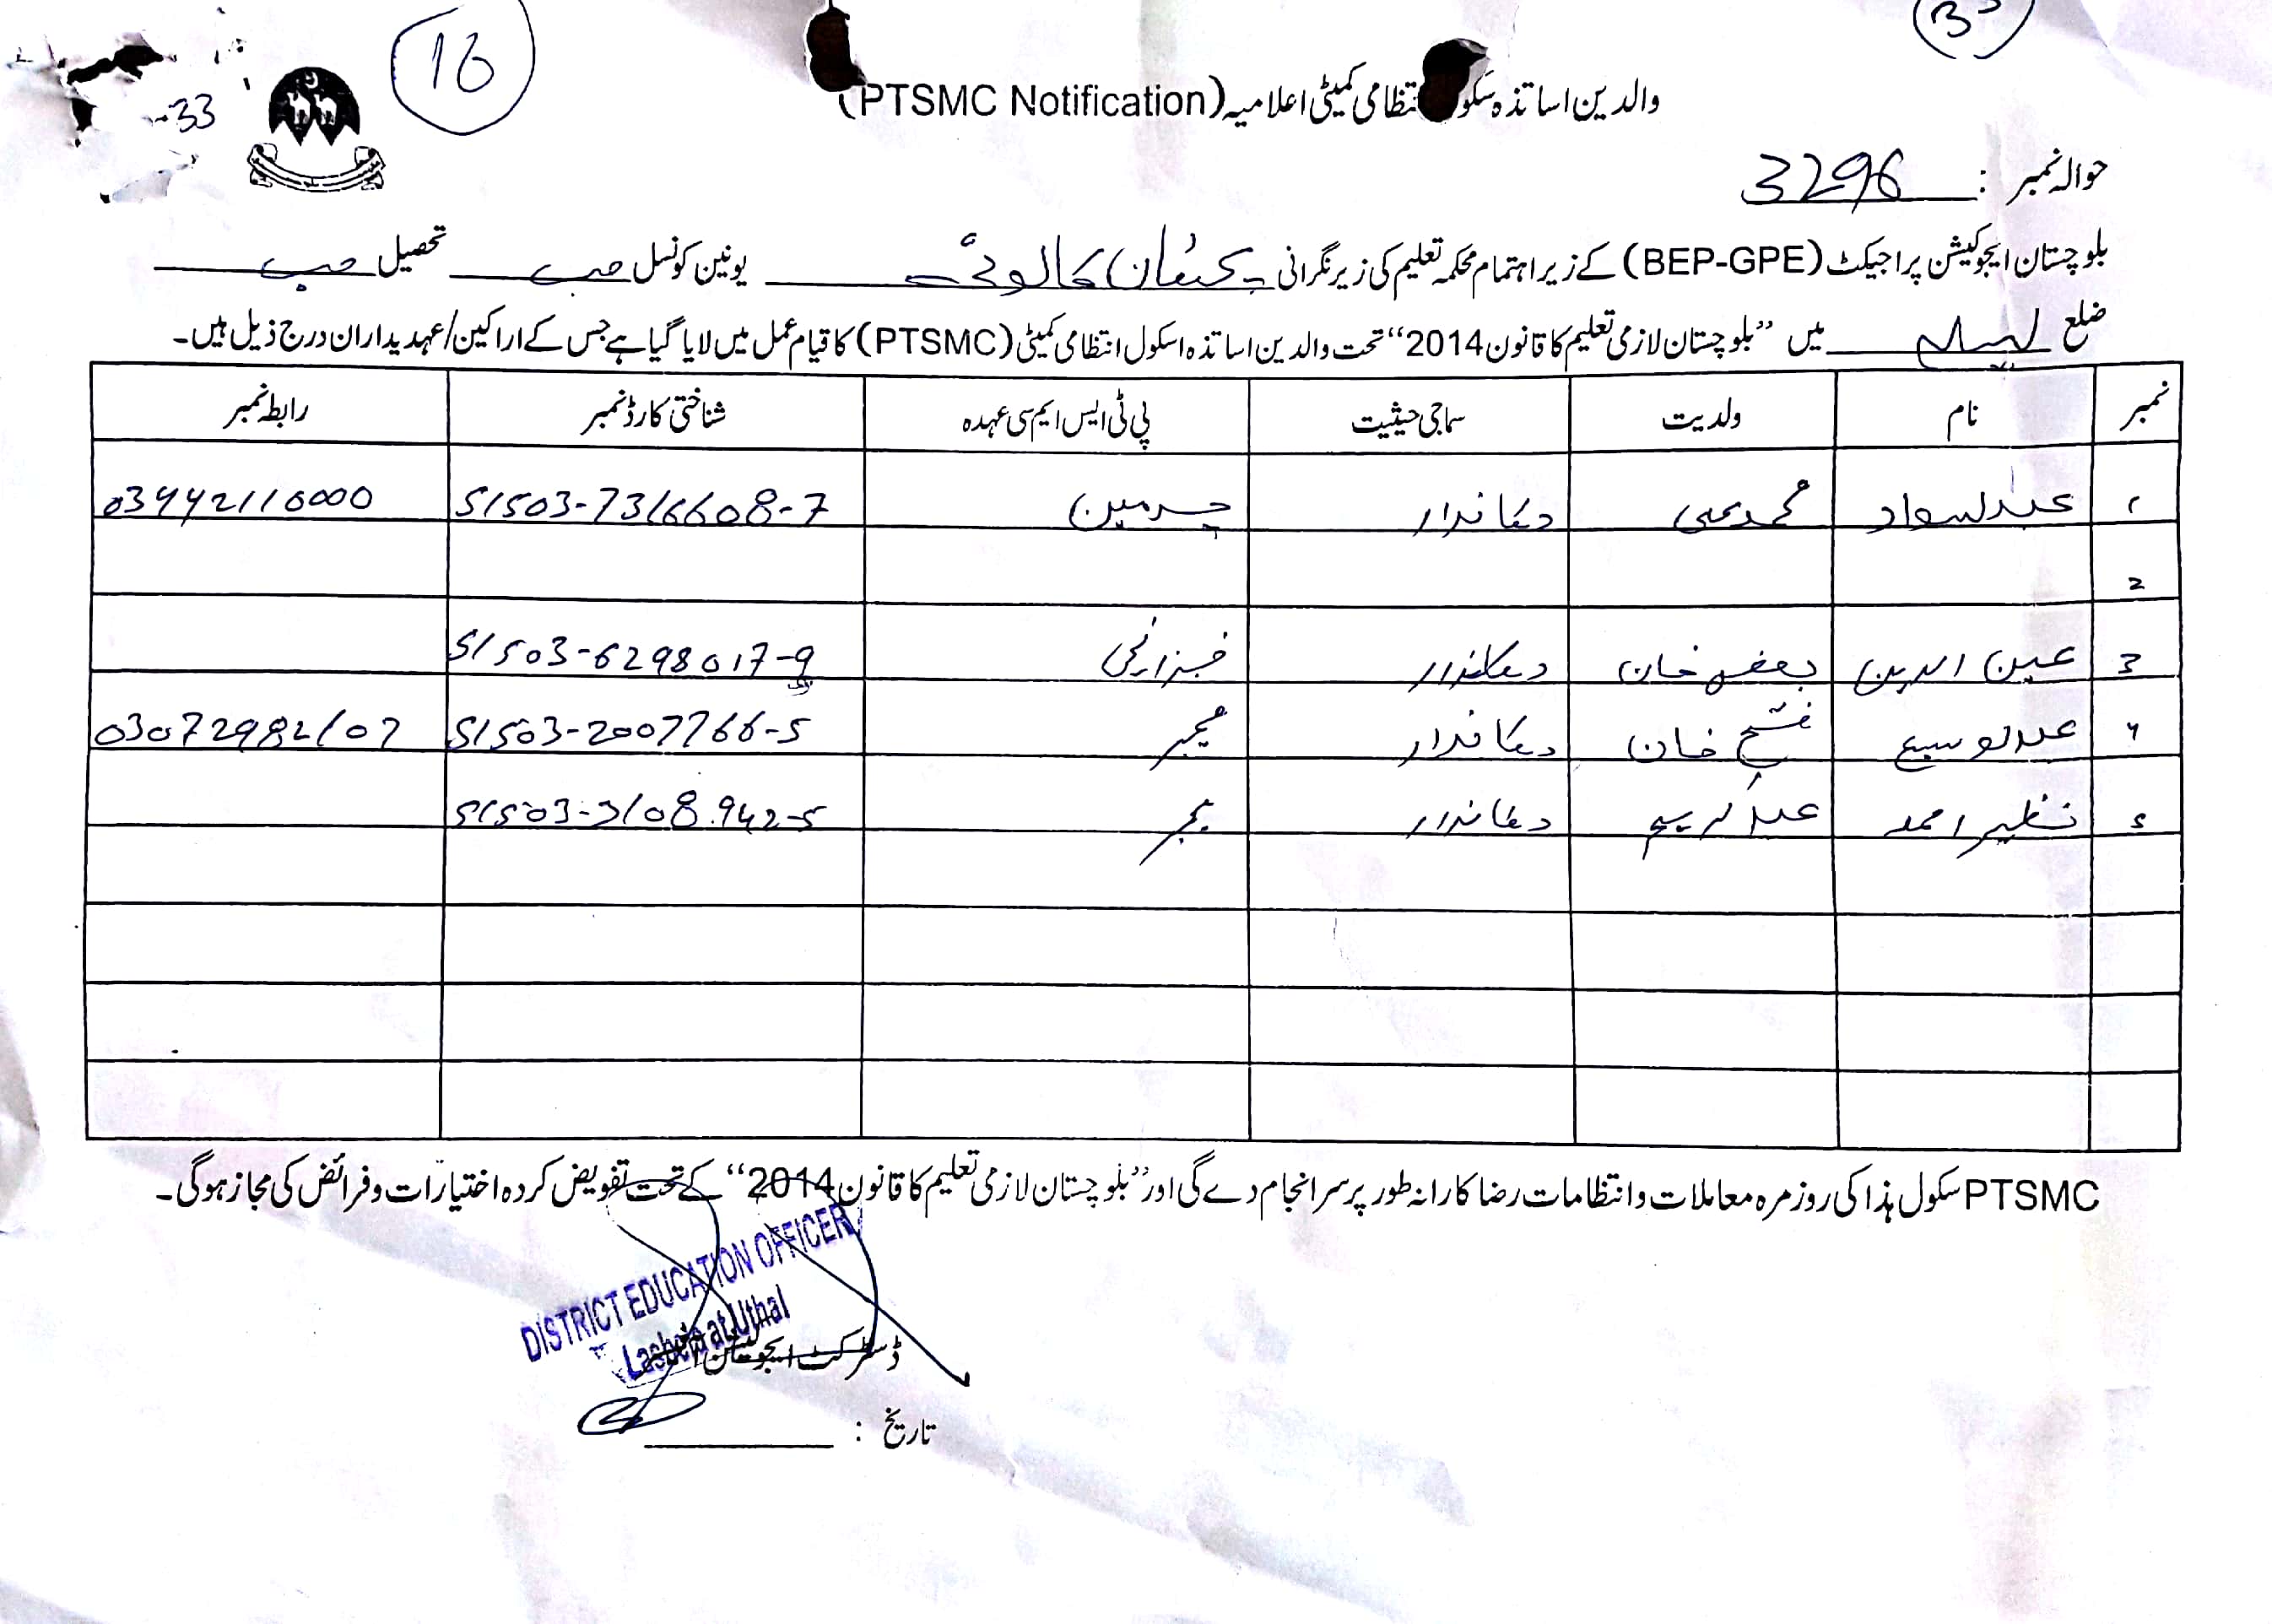 16
33
والدین اساتذہ سکول انتظامی کمیٹی اعلامیہ (PTSMC Notification)
حوالہ نمبر : 3296
بلوچستان ایجوکیشن پراجیکٹ (BEP-GPE) کے زیر اہتمام محکمہ تعلیم کی زیر نگرانی کالونی یونین کونسل حب تحصیل حب
ضلع لسبیلہ میں ”بلوچستان لازمی تعلیم کا قانون 2014“ تحت والدین اساتذہ اسکول انتظامی کمیٹی (PTSMC) کا قیام عمل میں لایا گیا ہے جس کے اراکین/عہدیداران درج ذیل ہیں۔
نمبر نام ولدیت سماجی حیثیت پی ٹی ایس ایم سی عہدہ شناختی کارڈ نمبر رابطہ نمبر
1 محمد دکاندار چیرمین 51503-7316608-7 03442110000
2
3 عین الدین خان دکاندار خزانچی 51503-6298017-9
4 عبدالوسیع فتح خان دکاندار ممبر 51503-2007766-5
5 نظیر احمد عبدالکریم دکاندار ممبر 51503-3108942-5
PTSMC سکول ہذا کی روزمرہ معاملات و انتظامات رضاکارانہ طور پر سرانجام دے گی اور ”بلوچستان لازمی تعلیم کا قانون 2014“ کے تحت تفویض کردہ اختیارات و فرائض کی مجاز ہوگی۔
DISTRICT EDUCATION OFFICER
Lasbela at Uthal
ڈسٹرکٹ ایجوکیشن
تاریخ :